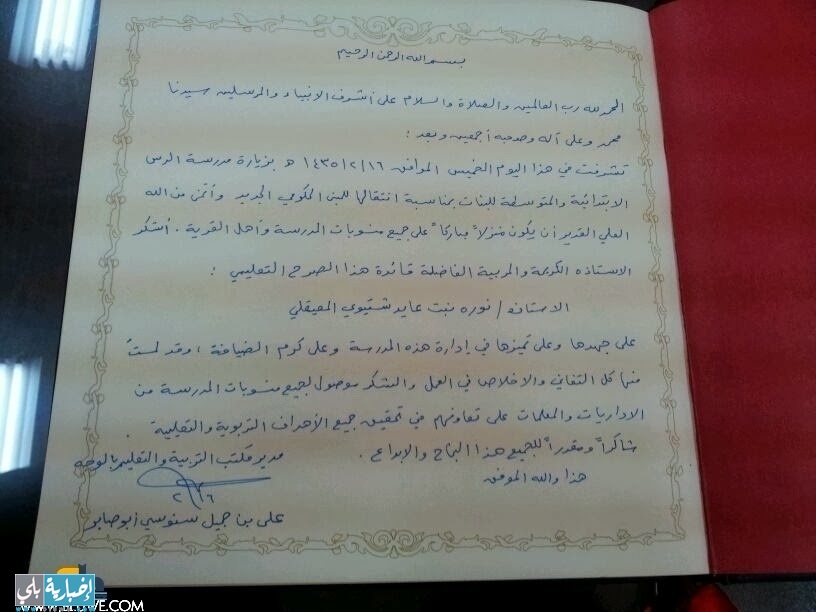 بسم الله الرحمن الرحيم
الحمد لله رب العالمين والصلاة والسلام على أشرف الانبياء والمرسلين سيدنا
محمد وعلى آله وصحبه أجمعين وبعد :
تشرفت في هذا اليوم الخميس الموافق ١٤٣٥/٢/١٦ هـ بزيارة مدرسة الرس
الابتدائية والمتوسطة للبنات بمناسبة انتقالها للمبنى الحكومي الجديد وأتمنى من الله
العلي القدير أن يكون منزلاً مباركاً على جميع منسوبات المدرسة وأهل القرية . أشكر
الاستاذه الكريمة والمربية الفاضلة قائدة هذا الصرح التعليمي :
الاستاذه / نوره بنت عايد شتيوي المعيقلي
على جهدها وعلى تميزها في إدارة هذه المدرسة وعلى كرم الضيافة ، وقد لمست
منها كل التفاني والاخلاص في العمل والشكر موصول لجميع منسوبات المدرسة من
الاداريات والمعلمات على تعاونهم في تحقيق جميع الأهداف التربوية والتعليمية .
شاكراً ومقدراً للجميع هذا النجاح والإبداع .
هذا والله الموفق
مدير مكتب التربية والتعليم بالوجه
٢/١٦
على بن جميل سنوسي أبو صابر
إخبارية بلي